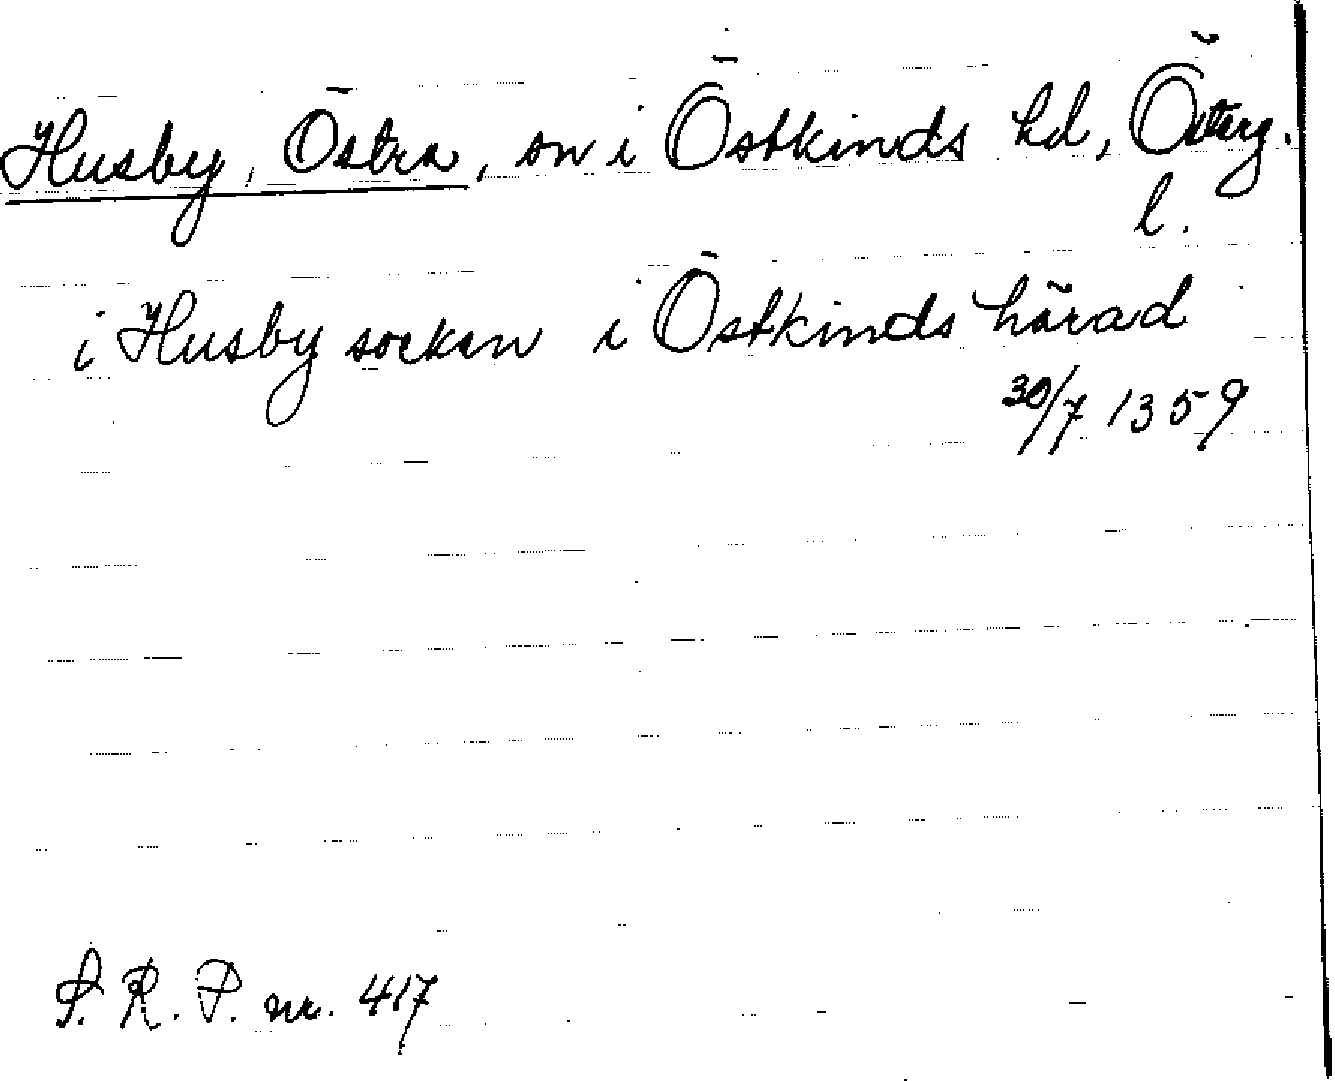 Husby, Östra, sn i Östkinds hd, Österg.
l.
i Husby socken i Östkinds härad
30/7 1359
S. R. P. nr. 417